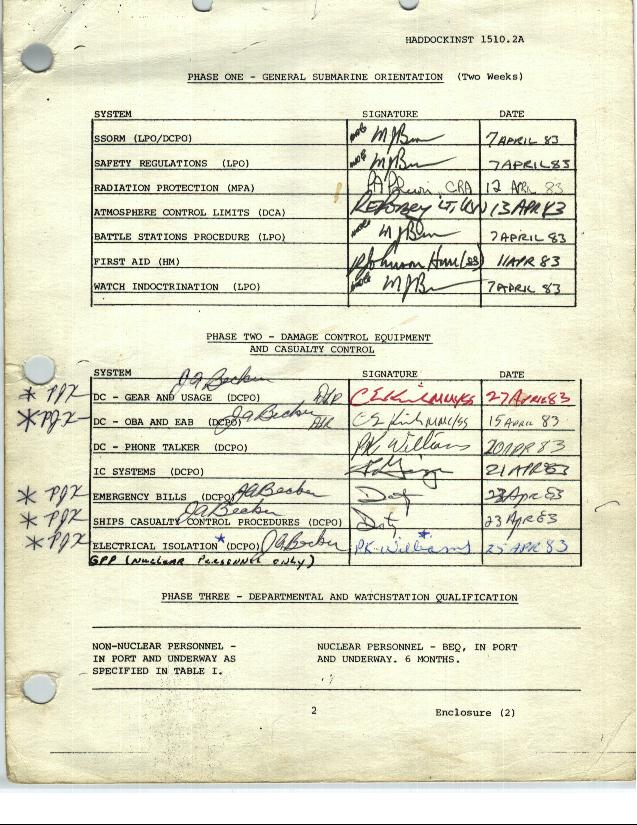 HADDOCKINST 1510.2A
PHASE ONE - GENERAL SUBMARINE ORIENTATION (Two Weeks)
SYSTEM SIGNATURE DATE
SSORM (LPO/DCPO) 7 APRIL 83
SAFETY REGULATIONS (LPO) 7 APRIL 83
RADIATION PROTECTION (MPA) 12 APRIL 83
ATMOSPHERE CONTROL LIMITS (DCA) 13 APR 83
BATTLE STATIONS PROCEDURE (LPO) 7 APRIL 83
FIRST AID (HM) Johnson 11 APR 83
WATCH INDOCTRINATION (LPO) 7 APRIL 83
PHASE TWO - DAMAGE CONTROL EQUIPMENT
AND CASUALTY CONTROL
SYSTEM JA Becker SIGNATURE DATE
* PJX DC - GEAR AND USAGE (DCPO) 27 APRIL 83
* PJX DC - OBA AND EAB (DCPO) JA Becker CE Kirk MM1/SS 15 APRIL 83
DC - PHONE TALKER (DCPO) PK Williams 20 APR 83
IC SYSTEMS (DCPO) 21 APR 83
* PJX EMERGENCY BILLS (DCPO) JA Becker 23 Apr 83
* PJX SHIPS CASUALTY CONTROL PROCEDURES (DCPO) JA Becker 23 APR 83
* PJX ELECTRICAL ISOLATION * (DCPO) JA Becker PK Williams * 25 APR 83
GPP (NUCLEAR PERSONNEL ONLY)
PHASE THREE - DEPARTMENTAL AND WATCHSTATION QUALIFICATION
NON-NUCLEAR PERSONNEL - NUCLEAR PERSONNEL - BEQ, IN PORT
IN PORT AND UNDERWAY AS AND UNDERWAY. 6 MONTHS.
SPECIFIED IN TABLE I.
2 Enclosure (2)